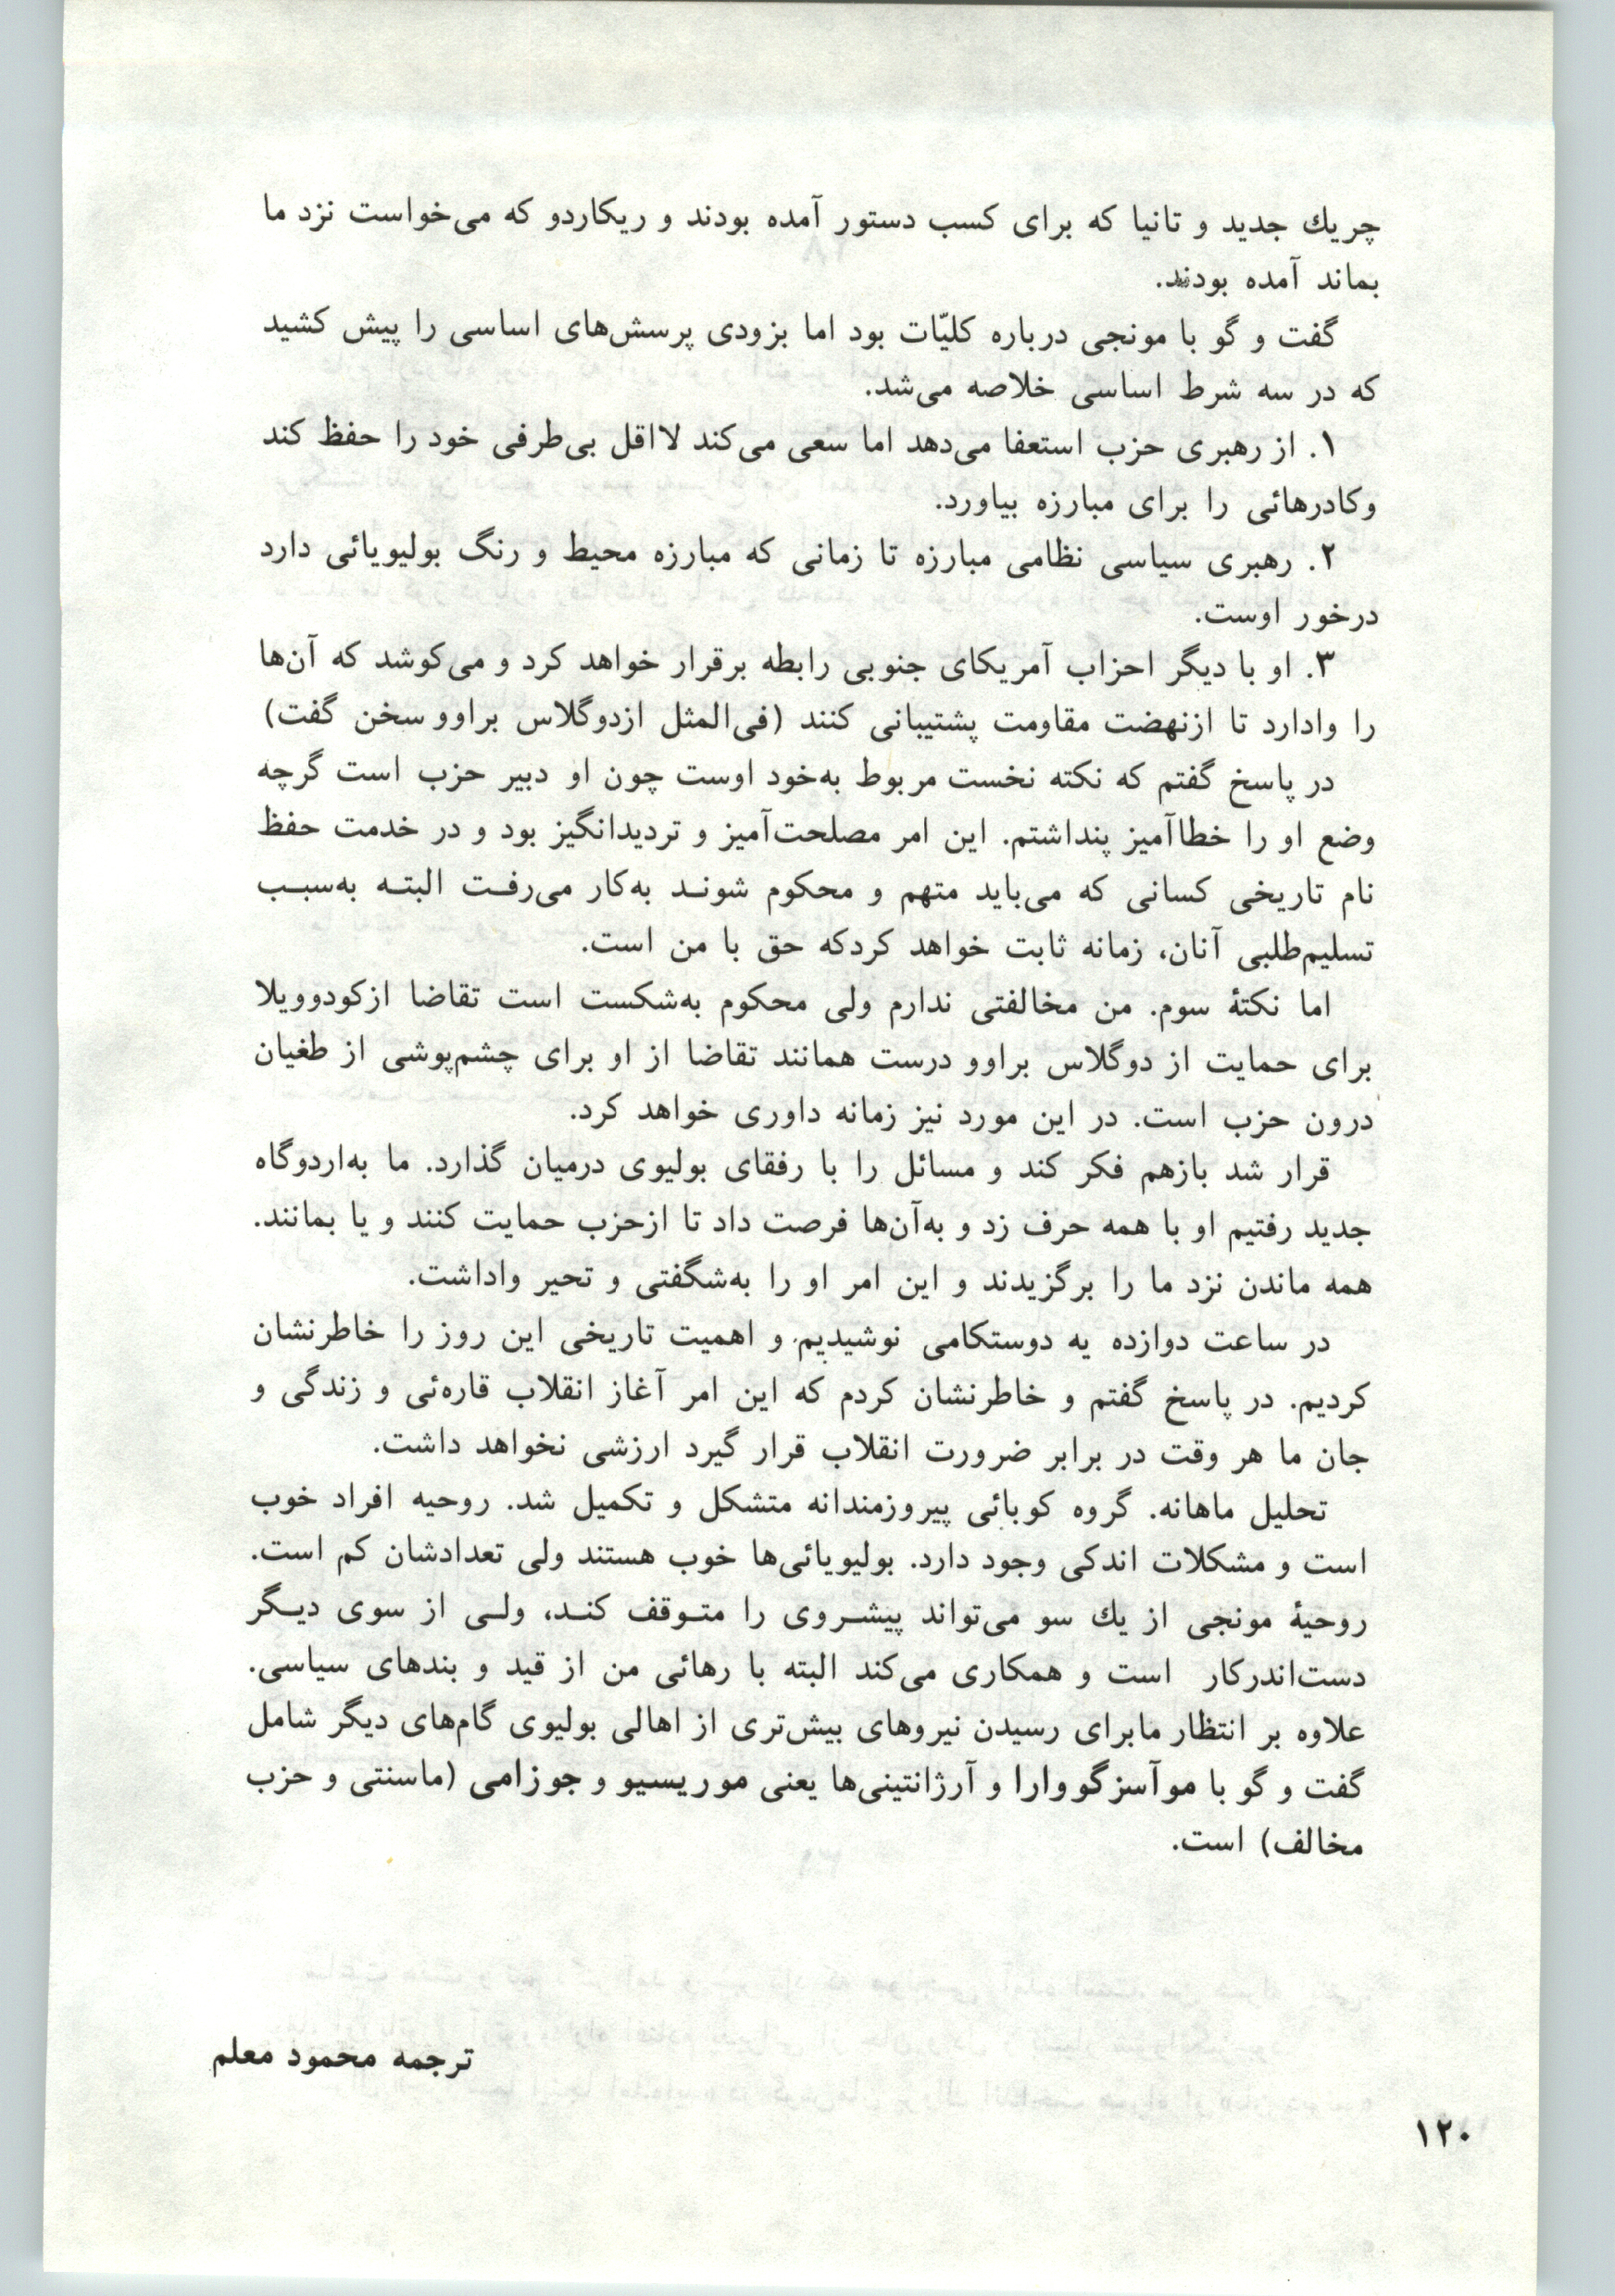 چریك جدید و تانیا که برای کسب دستور آمده بودند و ریکاردو که می‌خواست نزد ما
بماند آمده بودند.
گفت و گو با مونجی درباره کلیّات بود اما بزودی پرسش‌های اساسی را پیش کشید
که در سه شرط اساسی خلاصه می‌شد.
۱. از رهبری حزب استعفا می‌دهد اما سعی می‌کند لااقل بی‌طرفی خود را حفظ کند
وکادرهائی را برای مبارزه بیاورد.
۲. رهبری سیاسی نظامی مبارزه تا زمانی که مبارزه محیط و رنگ بولیویائی دارد
درخور اوست.
۳. او با دیگر احزاب آمریکای جنوبی رابطه برقرار خواهد کرد و می‌کوشد که آن‌ها
را وادارد تا ازنهضت مقاومت پشتیبانی کنند (فی‌المثل ازدوگلاس براوو سخن گفت)
در پاسخ گفتم که نکته نخست مربوط به‌خود اوست چون او دبیر حزب است گرچه
وضع او را خطاآمیز پنداشتم. این امر مصلحت‌آمیز و تردیدانگیز بود و در خدمت حفظ
نام تاریخی کسانی که می‌باید متهم و محکوم شونـد به‌کار می‌رفـت البتـه به‌سبـب
تسلیم‌طلبی آنان، زمانه ثابت خواهد کردکه حق با من است.
اما نکتهٔ سوم. من مخالفتی ندارم ولی محکوم به‌شکست است تقاضا ازکودوویلا
برای حمایت از دوگلاس براوو درست همانند تقاضا از او برای چشم‌پوشی از طغیان
درون حزب است. در این مورد نیز زمانه داوری خواهد کرد.
قرار شد بازهم فکر کند و مسائل را با رفقای بولیوی درمیان گذارد. ما به‌اردوگاه
جدید رفتیم او با همه حرف زد و به‌آن‌ها فرصت داد تا ازحزب حمایت کنند و یا بمانند.
همه ماندن نزد ما را برگزیدند و این امر او را به‌شگفتی و تحیر واداشت.
در ساعت دوازده یه دوستکامی نوشیدیم و اهمیت تاریخی این روز را خاطرنشان
کردیم. در پاسخ گفتم و خاطرنشان کردم که این امر آغاز انقلاب قاره‌ئی و زندگی و
جان ما هر وقت در برابر ضرورت انقلاب قرار گیرد ارزشی نخواهد داشت.
تحلیل ماهانه. گروه کوبائی پیروزمندانه متشکل و تکمیل شد. روحیه افراد خوب
است و مشکلات اندکی وجود دارد. بولیویائی‌ها خوب هستند ولی تعدادشان کم است.
روحیهٔ مونجی از یك سو می‌تواند پیشـروی را متـوقف کنـد، ولـی از سوی دیـگر
دست‌اندرکار است و همکاری می‌کند البته با رهائی من از قید و بندهای سیاسی.
علاوه بر انتظار مابرای رسیدن نیروهای بیش‌تری از اهالی بولیوی گام‌های دیگر شامل
گفت و گو با موآسزگووارا و آرژانتینی‌ها یعنی موریسیو و جوزامی (ماسنتی و حزب
مخالف) است.
ترجمه محمود معلم
۱۲۰